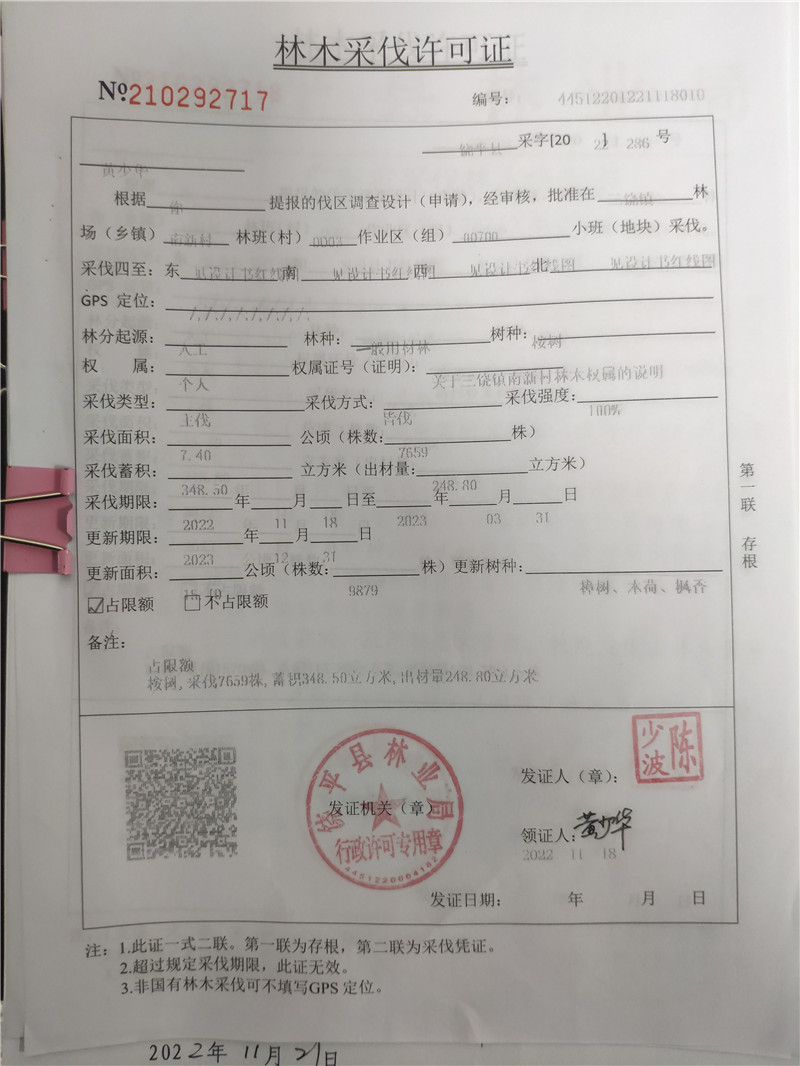 林木采伐许可证
№210292717 编号: 44512201221118010
饶平县 采字[20 22 ] 286 号
黄少华
根据 你 提报的伐区调查设计（申请），经审核，批准在 饶镇 林
场（乡镇） 南新村 林班（村） 0003 作业区（组） 00700 小班（地块）采伐。
采伐四至：东 见设计书红线图 南 见设计书红线图 西 见设计书红线图 北 见设计书红线图
GPS 定位： /,/,/,/,/,/,/,/
林分起源： 人工 林种： 一般用材林 树种： 桉树
权 属： 个人 权属证号（证明）： 关于三饶镇南新村林木权属的说明
采伐类型： 主伐 采伐方式： 皆伐 采伐强度： 100%
采伐面积： 7.40 公顷（株数： 7659 株）
采伐蓄积： 348.50 立方米（出材量： 248.80 立方米）
采伐期限： 2022 年 11 月 18 日至 2023 年 03 月 31 日
更新期限： 2023 年 12 月 31 日
更新面积： 公顷（株数： 9879 株）更新树种： 樟树、木荷、枫香
☑占限额 □不占限额
备注：
占限额
桉树,采伐7659株,蓄积348.50立方米,出材量248.80立方米
第一联 存根
饶平县林业局
行政许可专用章
4451220004162
发证机关（章）
发证人（章）： 陈少波
领证人: 黄少华
2022 11 18
发证日期： 年 月 日
注：1.此证一式二联。第一联为存根，第二联为采伐凭证。
2.超过规定采伐期限，此证无效。
3.非国有林木采伐可不填写GPS 定位。
2022年 11月 21日